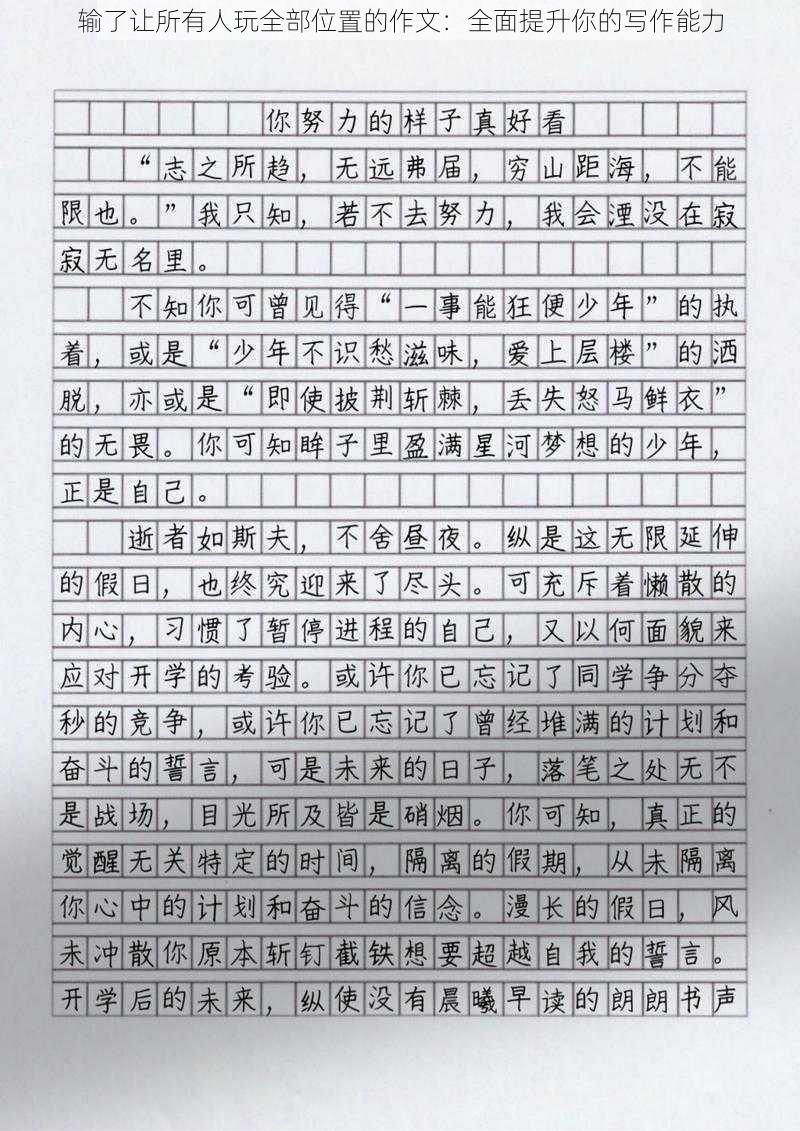 输了让所有人玩全部位置的作文：全面提升你的写作能力
你努力的样子真好看
“志之所趋，无远弗届，穷山距海，不能
限也。”我只知，若不去努力，我会湮没在寂
寂无名里。
不知你可曾见得“一事能狂便少年”的执
着，或是“少年不识愁滋味，爱上层楼”的洒
脱，亦或是“即使披荆斩棘，丢失怒马鲜衣”
的无畏。你可知眸子里盈满星河梦想的少年，
正是自己。
逝者如斯夫，不舍昼夜。纵是这无限延伸
的假日，也终究迎来了尽头。可充斥着懒散的
内心，习惯了暂停进程的自己，又以何面貌来
应对开学的考验。或许你已忘记了同学争分夺
秒的竞争，或许你已忘记了曾经堆满的计划和
奋斗的誓言，可是未来的日子，落笔之处无不
是战场，目光所及皆是硝烟。你可知，真正的
觉醒无关特定的时间，隔离的假期，从未隔离
你心中的计划和奋斗的信念。漫长的假日，风
未冲散你原本斩钉截铁想要超越自我的誓言。
开学后的未来，纵使没有晨曦早读的朗朗书声